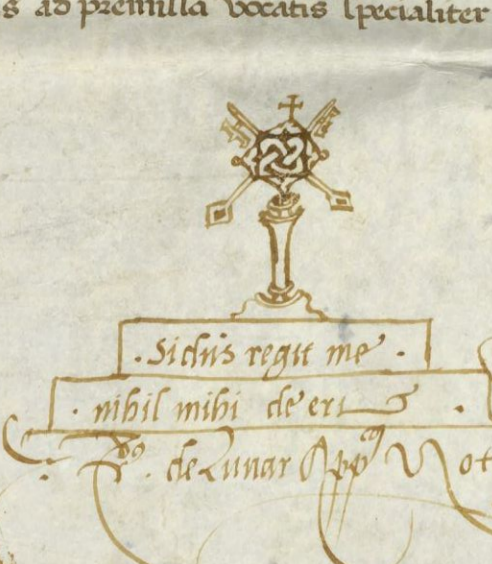 s ad premissa vocatis specialiter
. Sidus regit me .
. nihil mihi de erit .
de Lunar App Not